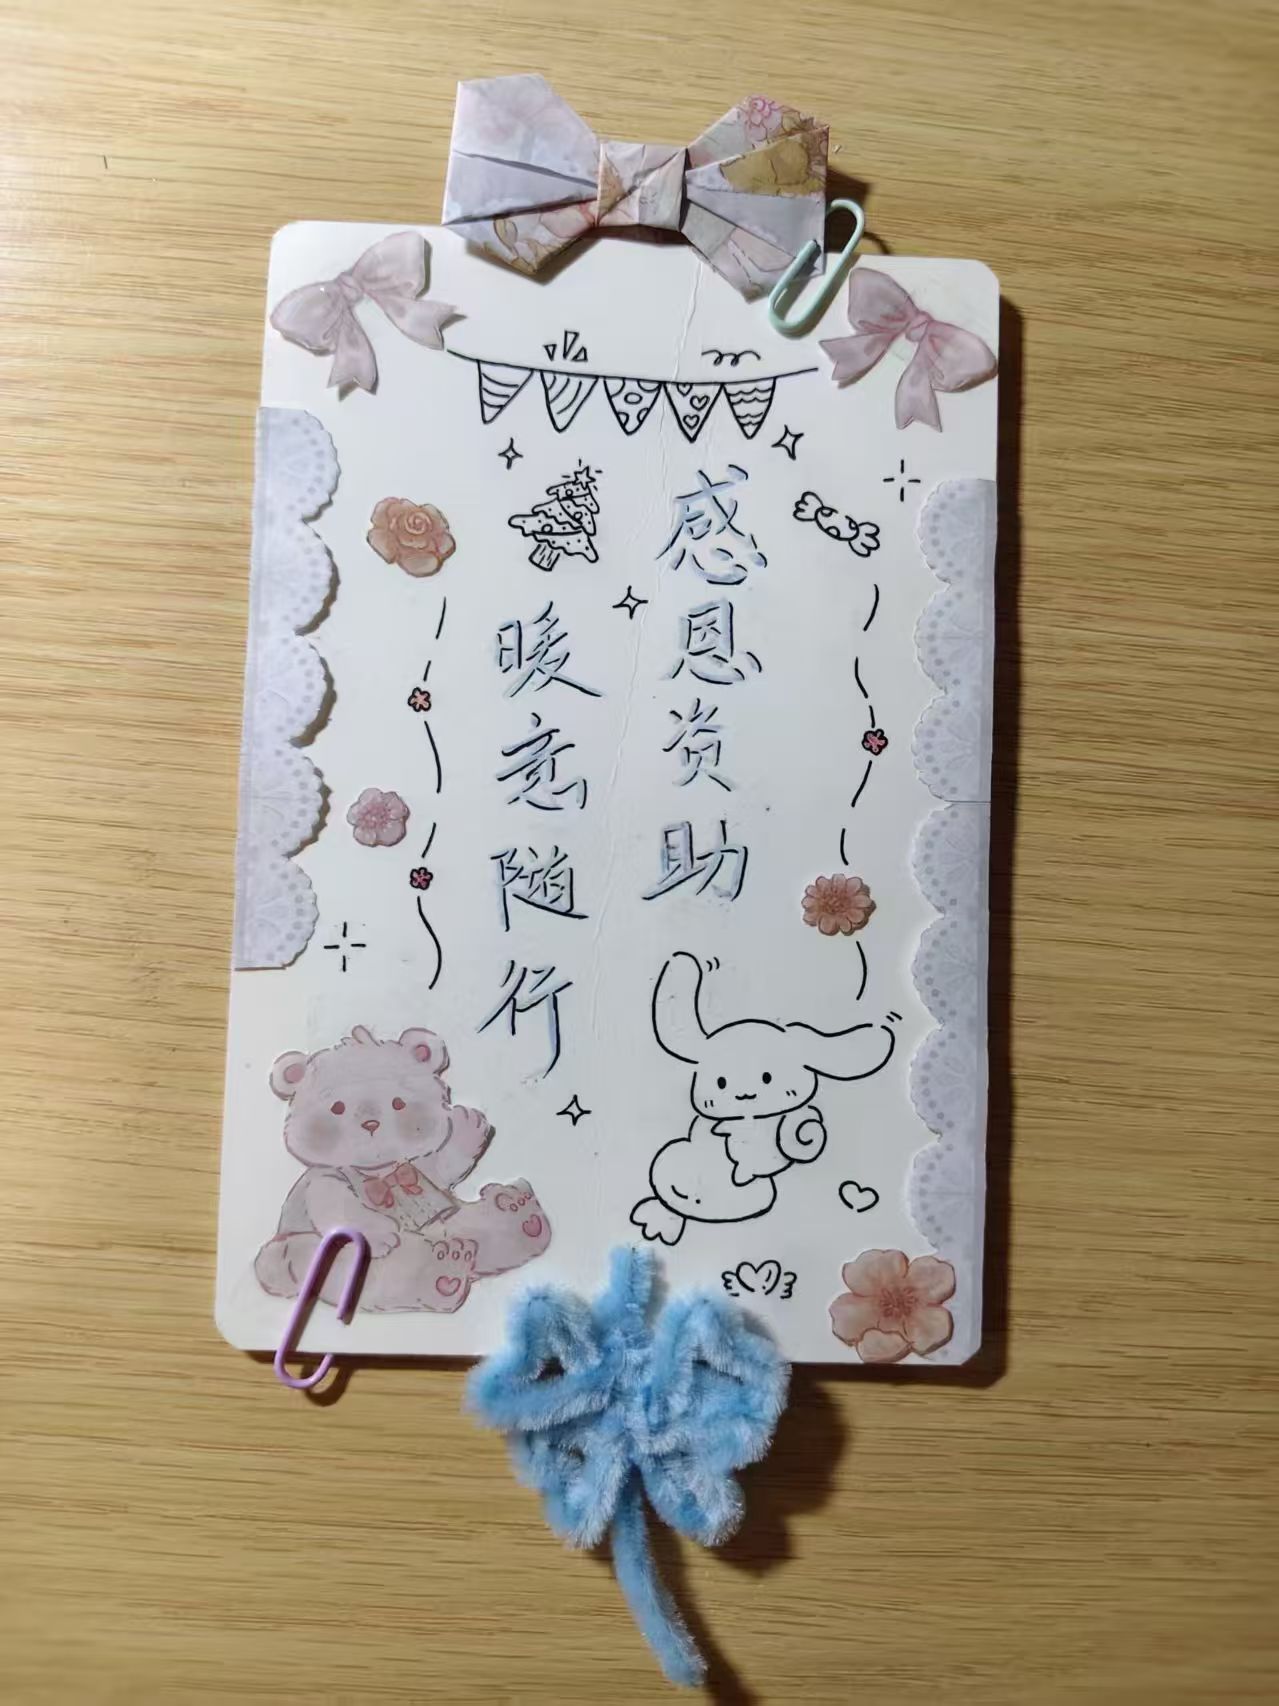 感恩资助
暖意随行